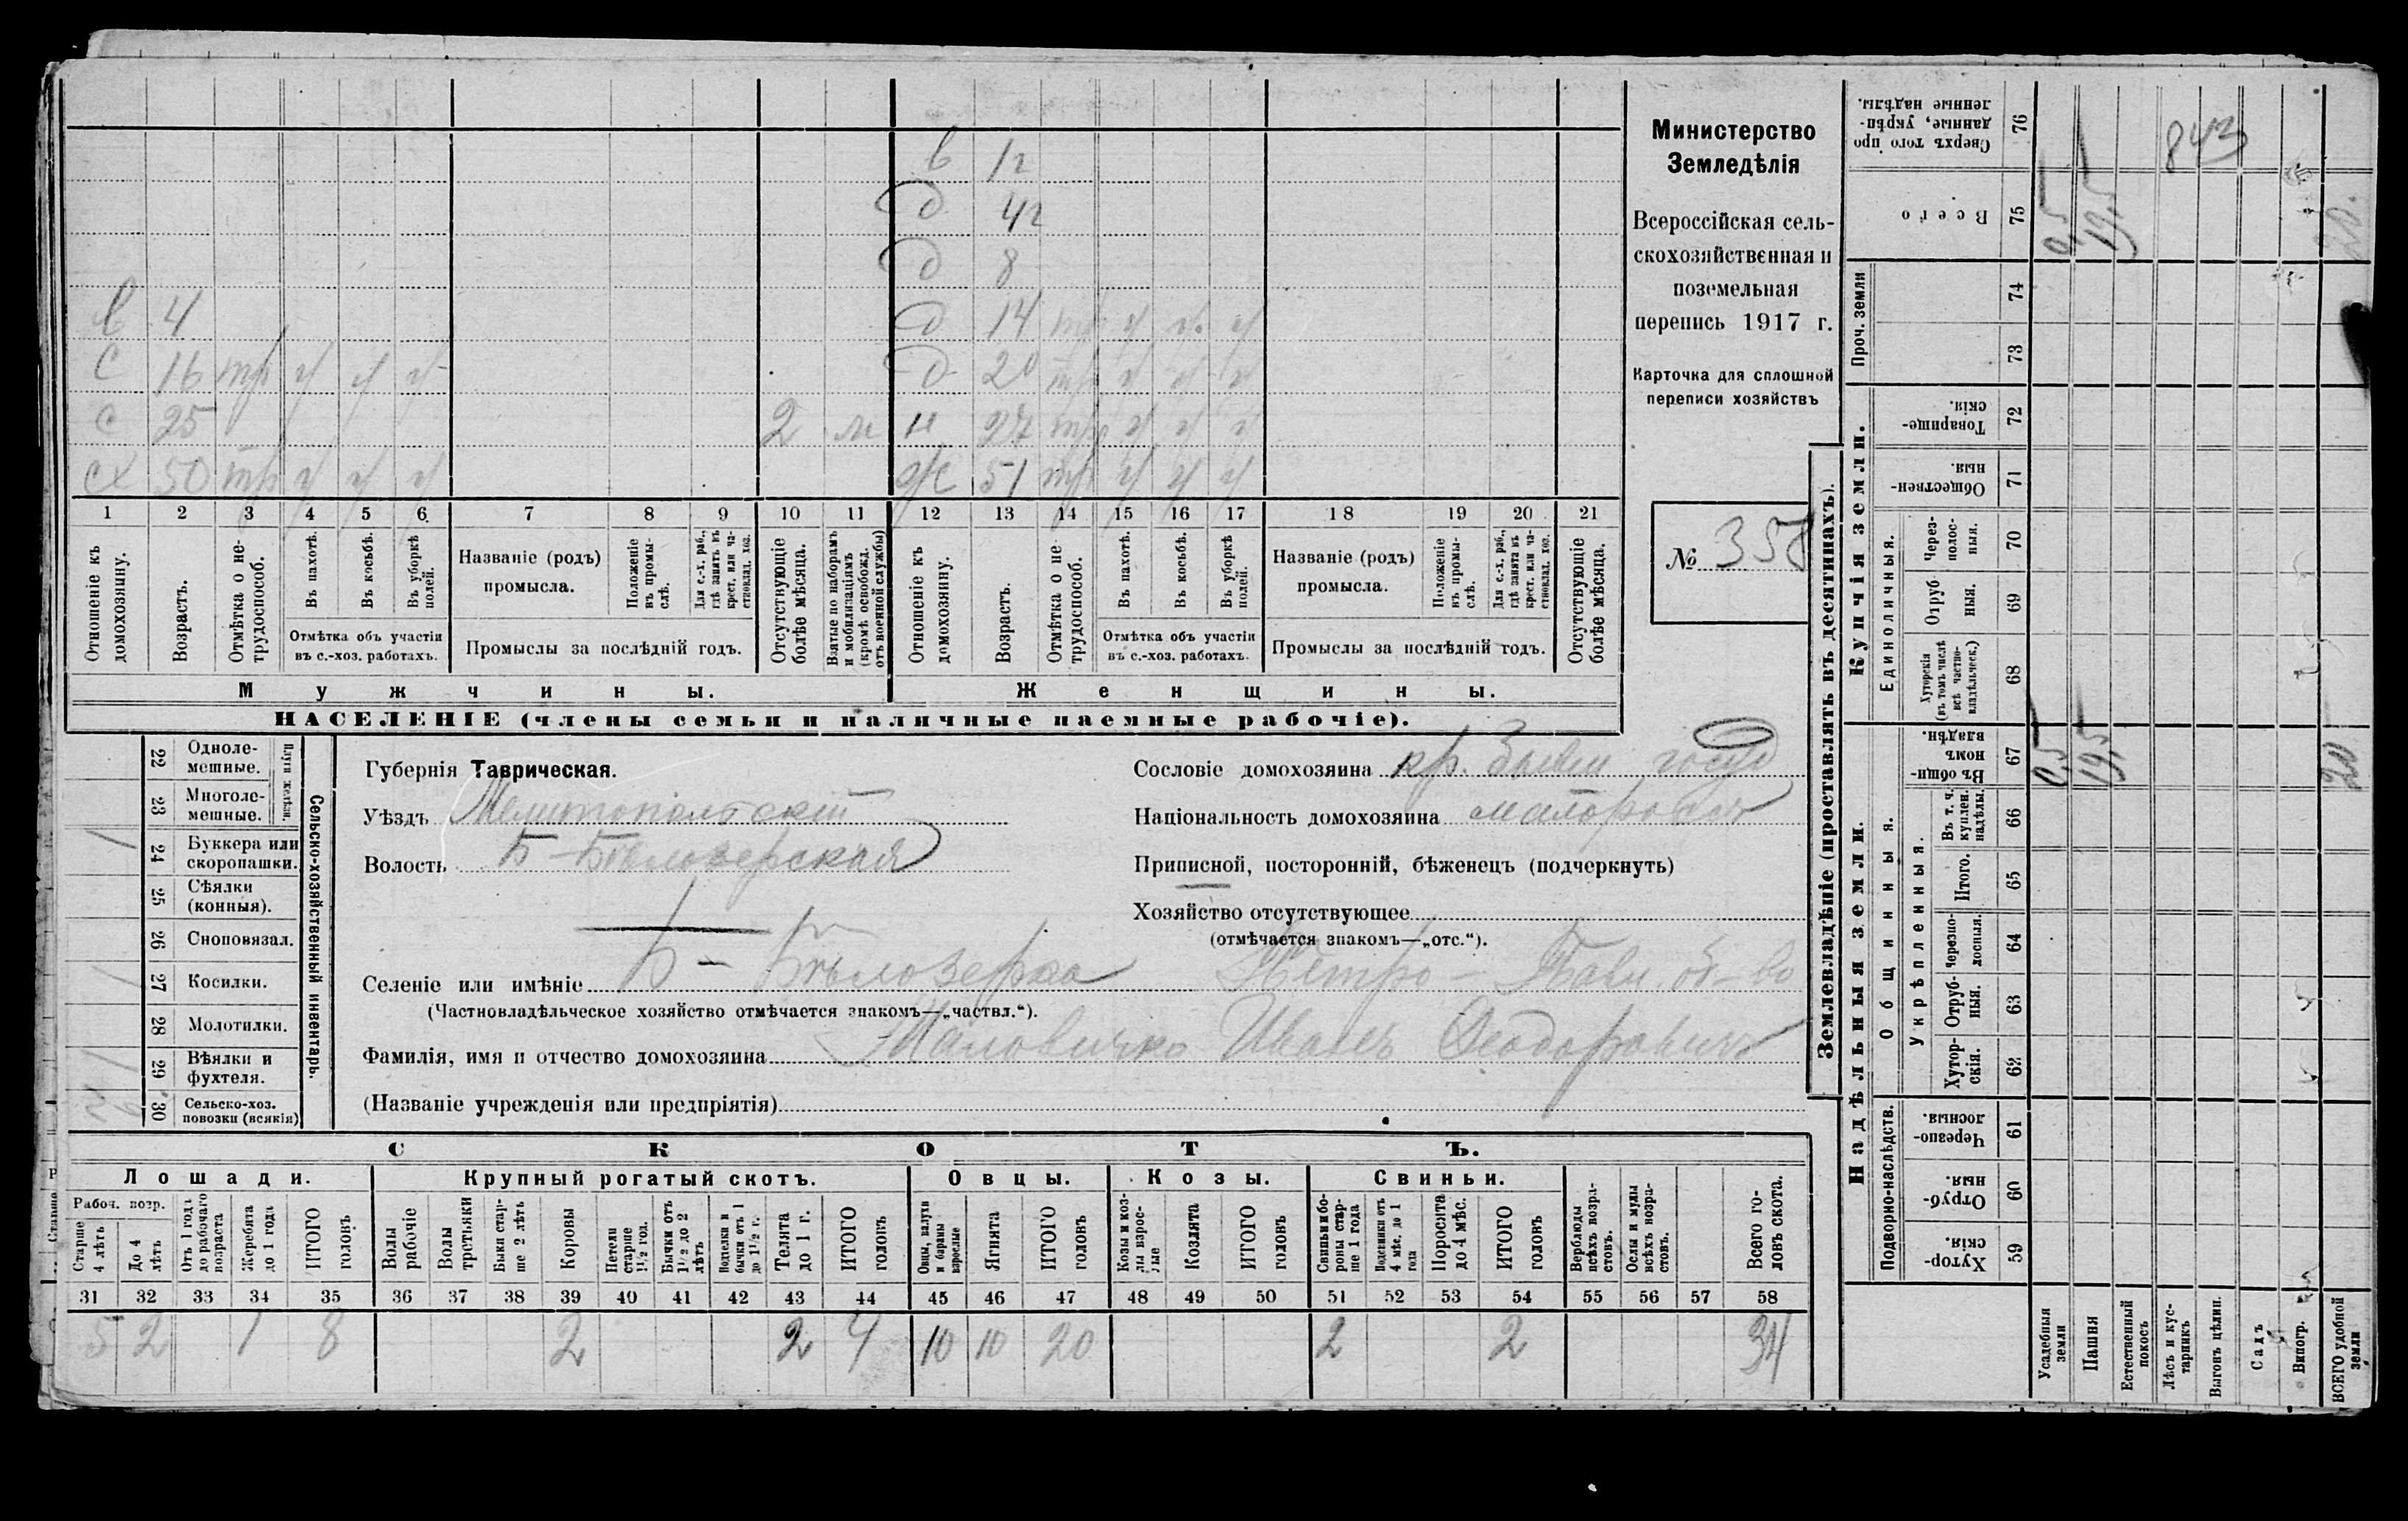 в 1г
д 4г
д 8
в 4 д 14 тр ч ч ч
с 16 тр ч ч ч д 20 тр ч ч ч
с 25 2 м н 27 тр ч ч ч
сх 50 тр ч ч ч ж 51 тр ч ч ч
1 2 3 4 5 6 7 8 9 10 11 12 13 14 15 16 17 18 19 20 21
Отношеніе къ домохозяину.
Возрастъ.
Отмѣтка о нетрудоспособ.
Въ пахотѣ.
Въ косьбѣ.
Въ уборкѣ полей.
Отмѣтка объ участіи въ с.-хоз. работахъ.
Названіе (родъ) промысла.
Положеніе въ промыслѣ.
Для с.-х. раб., гдѣ занятъ въ крест. или частновлад. хоз.
Промыслы за послѣдній годъ.
Отсутствующіе болѣе мѣсяца.
Взятые по наборамъ и мобилизаціямъ (кромѣ освобожд. отъ военной службы)
Отношеніе къ домохозяину.
Возрастъ.
Отмѣтка о не трудоспособ.
Въ пахотѣ.
Въ косьбѣ.
Въ уборкѣ полей.
Отмѣтка объ участіи въ с.-хоз. работахъ.
Названіе (родъ) промысла.
Положеніе въ промыслѣ.
Для с.-х. раб., гдѣ занята въ крест. или частновлад. хоз.
Промыслы за послѣдній годъ.
Отсутствующіе болѣе мѣсяца.
Мужчины.
Женщины.
НАСЕЛЕНІЕ (члены семьи и наличные наемные рабочіе).
Министерство
Земледѣлія
Всероссійская сель-
скохозяйственная и
поземельная
перепись 1917 г.
Карточка для сплошной
переписи хозяйствъ
№ 358
22 Одноле-
мешные.
23 Многоле-
мешные.
Плуги желѣзн.
1 24 Буккера или
скоропашки.
25 Сѣялки
(конныя).
26 Сноповязал.
1 27 Косилки.
28 Молотилки.
1 29 Вѣялки и
фухтеля.
30 Сельско-хоз.
повозки (всякія)
Сельско-хозяйственный инвентарь.
Губернія Таврическая.
Уѣздъ Мелитопольскій
Волость Б-Бѣлозерская
Сословіе домохозяина кр. бывш госуд
Національность домохозяина малоросс
Приписной, посторонній, бѣженецъ (подчеркнуть)
Хозяйство отсутствующее
(отмѣчается знакомъ—„отс.“).
Селеніе или имѣніе Б-Бѣлозерка Петро-Павл. об-во
(Частновладѣльческое хозяйство отмѣчается знакомъ—„частвл.“).
Фамилія, имя и отчество домохозяина Маловичко Иванъ Феодоровичъ
(Названіе учрежденія или предпріятія)
СКОТЪ.
Лошади. Крупный рогатый скотъ. Овцы. Козы. Свиньи.
Рабоч. возр.
Старше 4 лѣтъ
До 4 лѣтъ
Отъ 1 года до рабочаго возраста
Жеребята до 1 года
ИТОГО головъ
Волы рабочіе
Волы третьяки
Быки старше 2 лѣтъ
Коровы
Нетели старше 1½ год.
Бычки отъ 1½ до 2 лѣтъ
Подтелки и бычки отъ 1 до 1½ г.
Телята до 1 г.
ИТОГО головъ
Овцы, валухи и бараны взрослые
Ягнята
ИТОГО головъ
Козы и козлы взрослые
Козлята
ИТОГО головъ
Свиньи и бороны старше 1 года
Подсвинки отъ 4 мѣс. до 1 года
Поросята до 4 мѣс.
ИТОГО головъ
Верблюды всѣхъ возрастовъ.
Ослы и мулы всѣхъ возрастовъ.
Всего головъ скота.
31 32 33 34 35 36 37 38 39 40 41 42 43 44 45 46 47 48 49 50 51 52 53 54 55 56 57 58
5 2 1 8 2 2 4 10 10 20 2 2 34
Землевладѣніе (проставлять въ десятинахъ).
Надѣльныя земли.
Купчія земли.
Проч. земли
Подворно-наслѣдств.
Общинныя.
Укрѣпленныя.
Единоличныя.
Сверхъ того проданные, укрѣпленные надѣлы. 76
Всего 75 0,5 19,5 20.
843
74
73
Товарищескія. 72
Общественныя. 71
Черезполосныя. 70
Отрубныя. 69
Хуторскія (въ томъ числѣ всѣ частновладѣльческ.) 68
Въ общинномъ владѣн. 67 0,5 19,5 20
Въ т. ч. куплен. надѣлы. 66
Итого. 65
Черезполосныя. 64
Отрубныя. 63
Хуторскія. 62
Черезполосныя. 61
Отрубныя. 60
Хуторскія. 59
Усадебныя земли
Пашня
Естественный покосъ
Лѣсъ и кустарникъ
Выгонъ цѣлин.
Садъ
Виногр.
ВСЕГО удобной земли